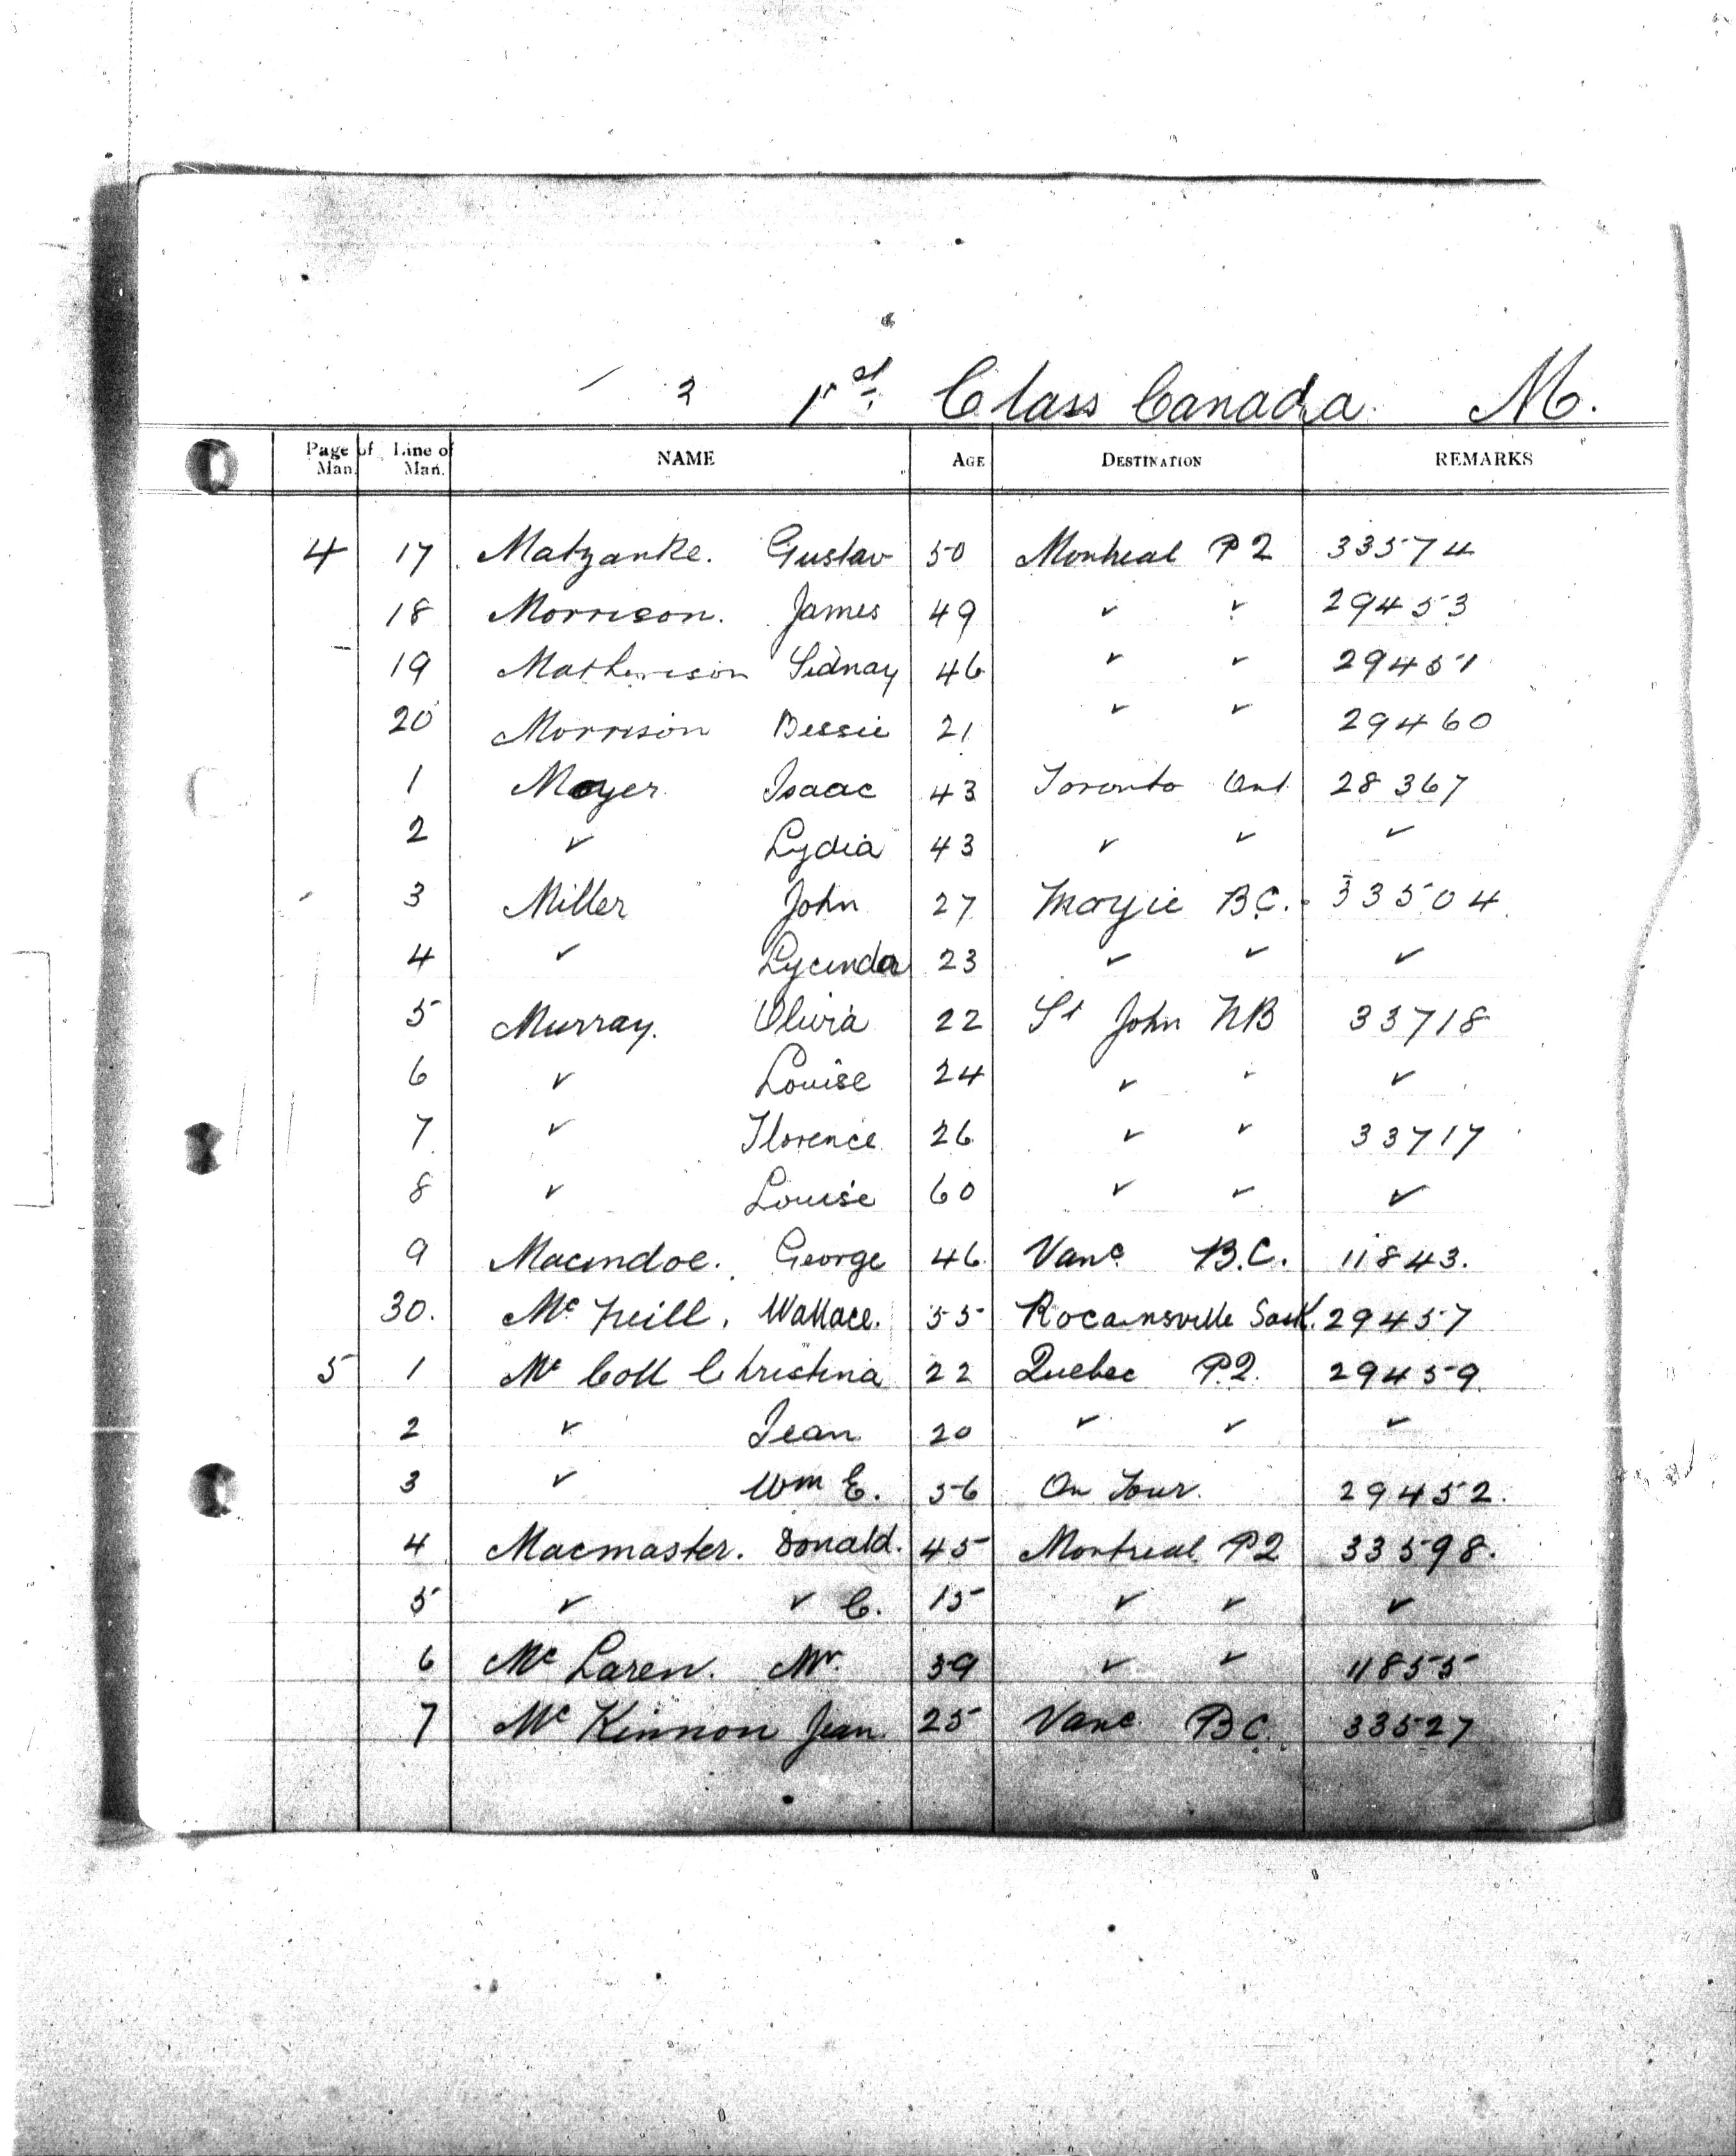 2 1st. Class Canada. M.
Page of Man. Line of Man. NAME AGE DESTINATION REMARKS
4 17 Matzanke. Gustav 50 Montreal P2 33574
18 Morrison. James 49 " " 29453
19 Mathewson Sidnay 46 " " 29451
20 Morrison Bessie 21 " " 29460
1 Moyer Isaac 43 Toronto Ont 28367
2 " Lydia 43 " " "
3 Miller John 27 Moyie B.C. 33504
4 " Lycinda 23 " " "
5 Murray. Olivia 22 St John NB 33718
6 " Louise 24 " " "
7 " Florence 26 " " 33717
8 " Louise 60 " " "
9 Macindoe. George 46 Vanc. B.C. 11843.
30. Mc Neill. Wallace. 55 Rocansville Sask. 29457
5 1 Mc Coll Christina 22 Quebec P.2. 29459.
2 " Jean 20 " " "
3 " Wm E. 56 On Tour. 29452.
4 Macmaster. Donald. 45 Montreal P2 33598.
5 " " C. 15 " " "
6 Mc Laren. Mr. 39 " " 11855
7 Mc Kinnon Jean 25 Vanc. B.C. 33527